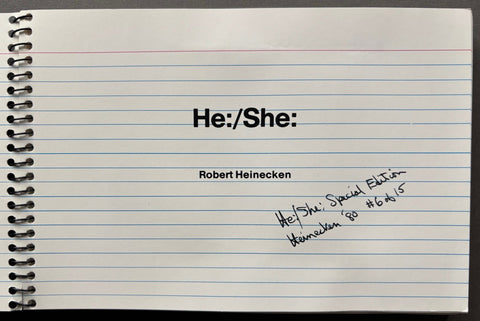 He:/She:
Robert Heinecken
He:/She: Special Edition
Heinecken '80 #6 of 15